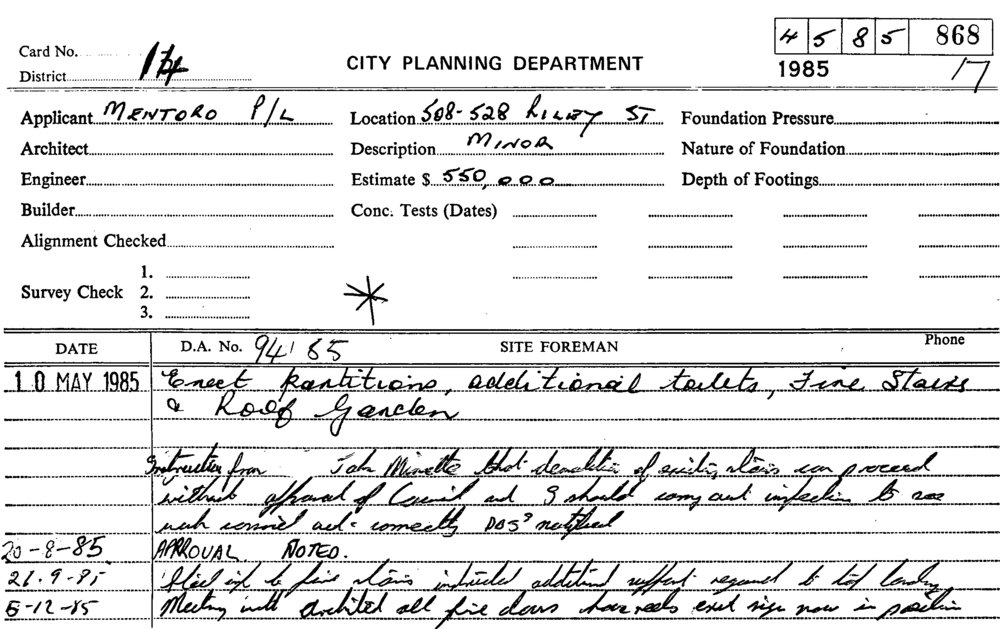 4 5 8 5 868
Card No.
CITY PLANNING DEPARTMENT
District
1985 /17
Applicant MENTORO P/L Location 508-528 RILEY ST Foundation Pressure
Architect Description MINOR Nature of Foundation
Engineer Estimate $ 550,000 Depth of Footings
Builder Conc. Tests (Dates)
Alignment Checked
1.
Survey Check 2.
3.
DATE D.A. No. 94 85 SITE FOREMAN Phone
10 MAY 1985 Erect partitions, additional toilets, Fire Stairs
& Roof Garden
Instruction from that demolition of existing stairs can proceed
without approval of Council and I should carry out inspection to see
work correctly
20-8-85 APPROVAL NOTED.
Steel to fire stairs instructed additional support required to top landing
6-12-85 Meeting with architect all fire doors exit sign now in position